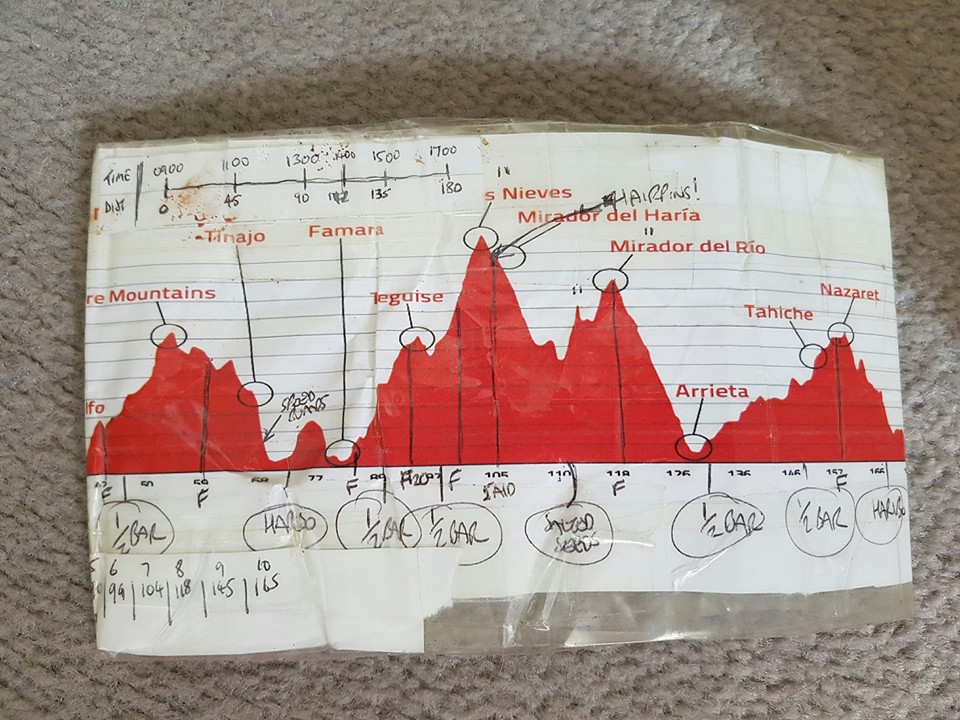 TIME 0900 1100 1300 1400 1500 1700
DIST 0 45 90 112 135 180
s Nieves
HAIRPINS!
Mirador del Haría
Tinajo
Famara
Mirador del Río
re Mountains
Teguise
Nazaret
Tahiche
Arrieta
lfo
SPEED
50 59 68 77 105 110 118 126 136 146 157 166
F F F F F F
1/2 BAR
HARIBO
1/2 BAR
1/2 BAR
SALTED
1/2 BAR
1/2 BAR
HARIBO
6 7 8 9 10
94 104 118 145 165